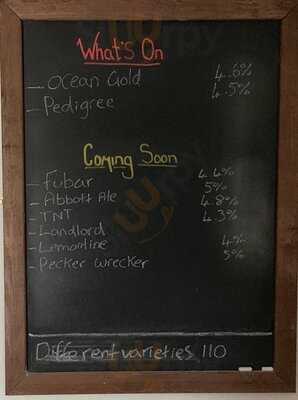 What's On
- Ocean Gold 4.6%
- Pedigree 4.5%
Coming Soon
- Fubar 4.4%
- Abbott Ale 5%
- TNT 4.8%
- Landlord 4.3%
- Lemontine 4%
- Pecker wrecker 5%
Different varieties 110